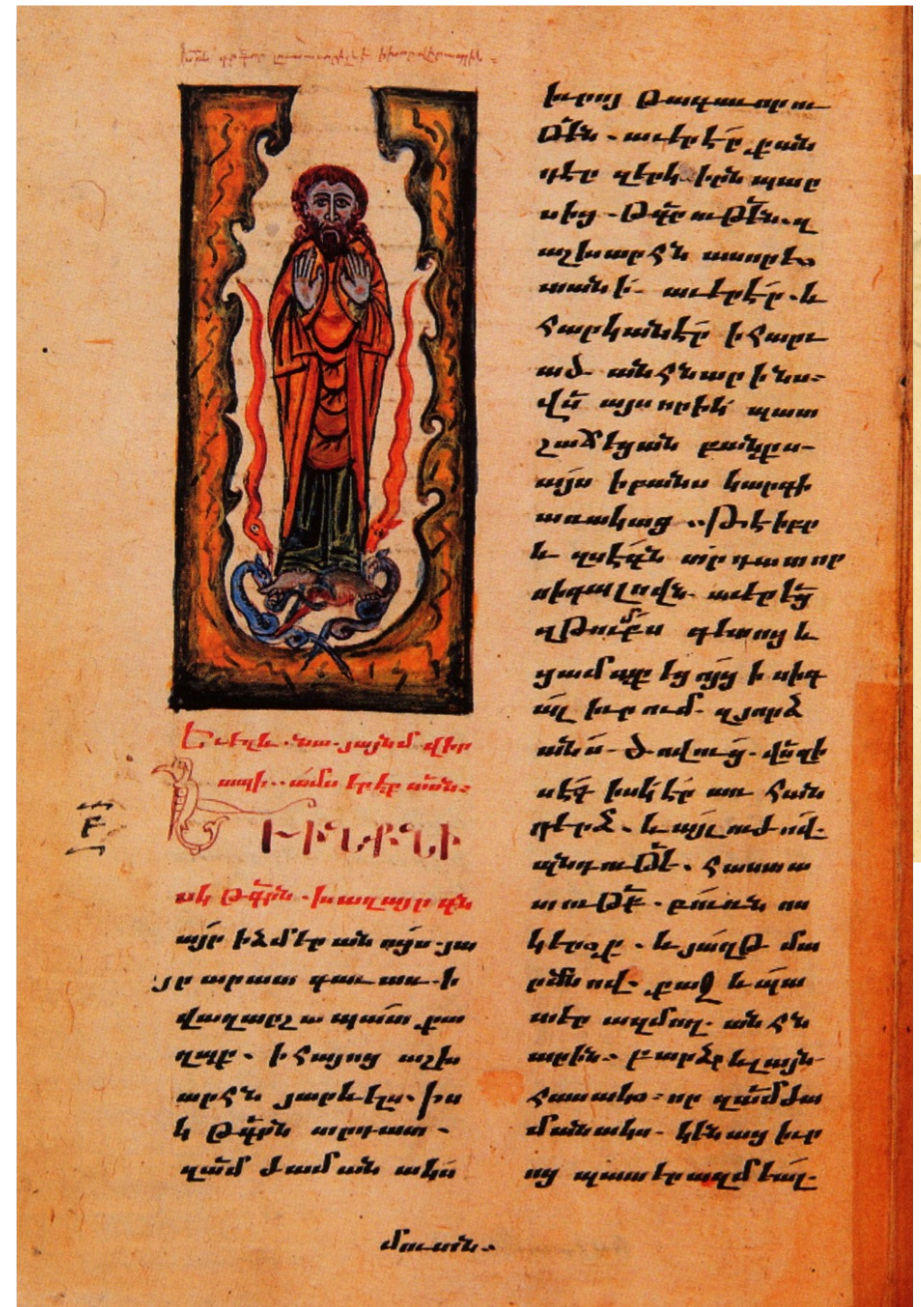 Եւ եղև. նա. յայնմ վիր
ապի.. ամս երեք տասն:
սկ թգրն. խաղայր գն
այր իջմէր անոցս. յա
յրարատ գաւառ. ի
վաղարշապատ քա
ղաք. ի հայոց աշխ
արհն յարևելս. իս
կ թգրն տրդատ.
զամ ժամանակս
իւրոյ թագաւորու
թեն. աւերէր քան
դէր զերկիրն պար
սից. թգրութեն. զ
աշխարհն ասորես
տանի. աւերէր. և
հարկանէր ի հարու
ած անհնարինս:
վն այսորիկ պատ
շաճեցան բանքս.
այս ի բանս կարգի
առակաց .. Թէ իբր
և զսէգն տրդատ որ
սիգալովն. աւերեց
զթումբս գետոց և
ցամաքեցոյց ի սիգ
ալ իւրում. զյորձ
անս. ծովուց. վնզի
սէգ իսկ էր առ հան
դերձ. և այլ ուժով.
պնդութե. հաստա
տութե. բուռն ոս
կերօք. և յաղթ մա
րմնով. քաջ և պա
տերազմող. անհն
արին. բարձր և լայն
հասակօ: որ զամ ժա
մանակս. կենաց իւր
ոց պատերազմեալ.